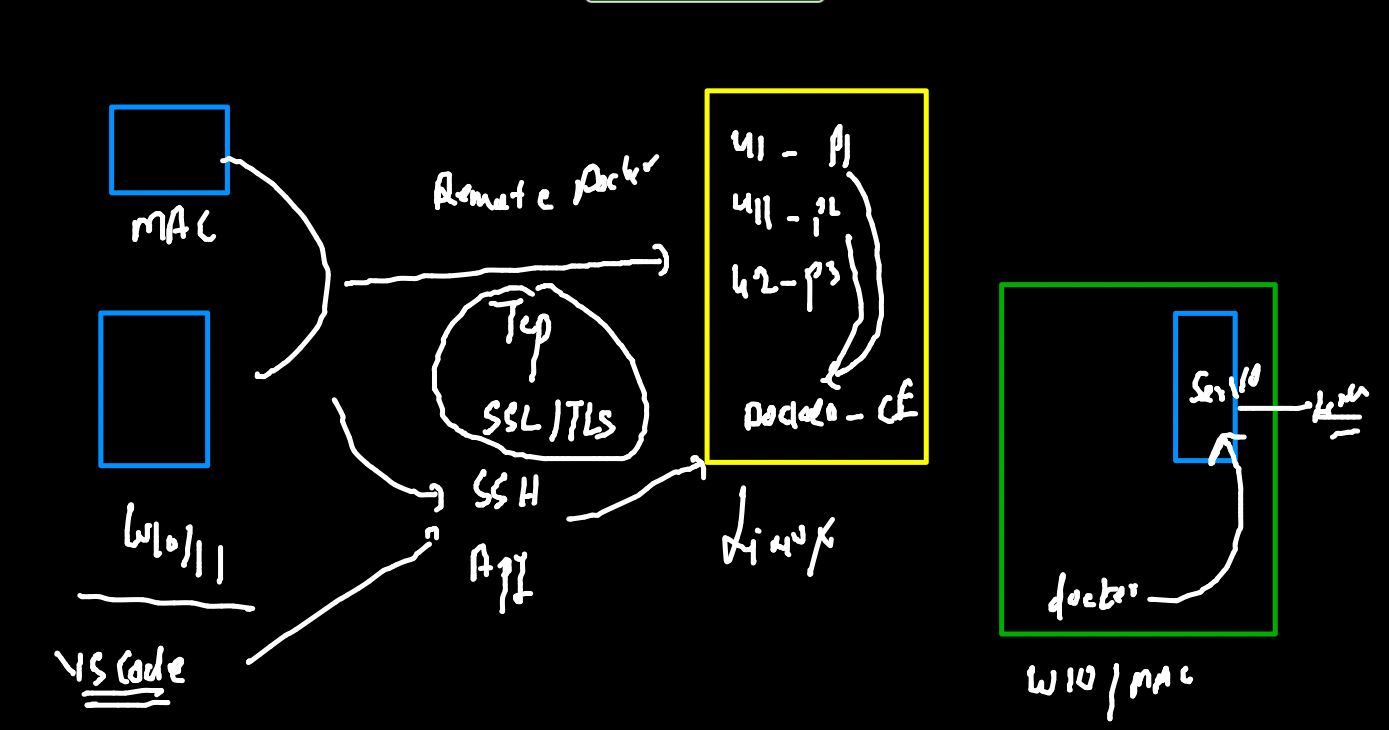 MAC
W10/11
VS Code
Remote Docker
Tcp
SSL/TLS
SSH
App
U1 - P1
U11 - P2
U2 - P3
Docker - CE
Linux
docker
W10/MAC